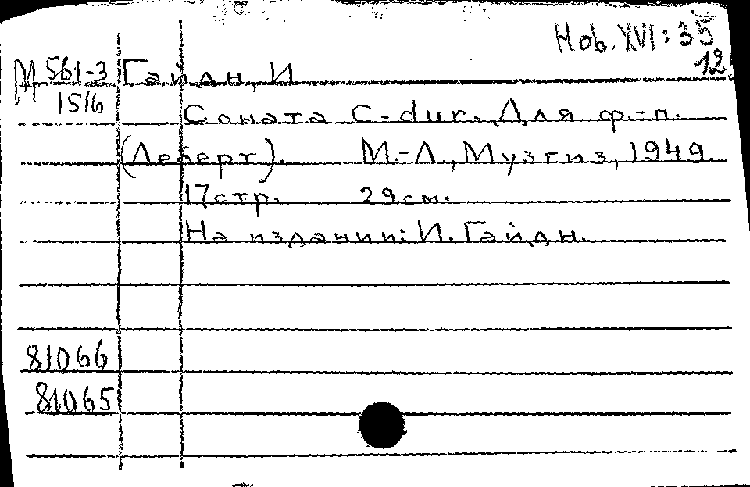 Hob. XVI: 35
12.
М 561-3 Гайдн, И
1516
Соната C-dur. Для ф.-п.
(Леберт). М.-Л., Музгиз, 1949.
17стр. 29см.
На издании: И. Гайдн.
81066
81065